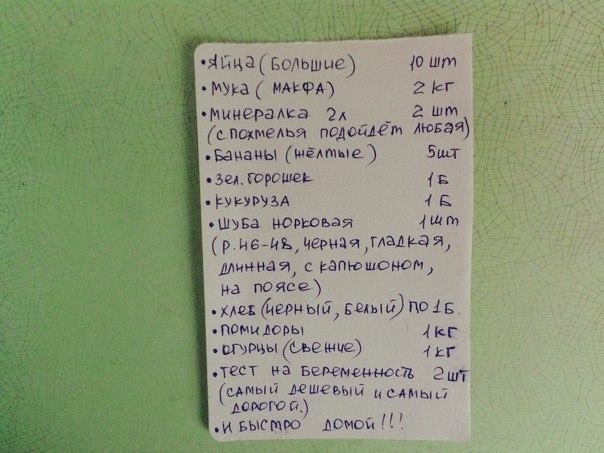 • Яйца (большие) 10 шт
• мука (макфа) 2 кг
• минералка 2л 2 шт
(с похмелья подойдёт любая)
• Бананы (жёлтые) 5шт
• зел. горошек 1 Б
• кукуруза 1 Б
• шуба норковая 1 шт
(р. 46-48, черная, гладкая,
длинная, с капюшоном,
на поясе)
• хлеб (черный, белый) по 1 Б.
• помидоры 1 кг
• огурцы (свежие) 1 кг
• тест на беременность 2 шт
(самый дешевый и самый
дорогой.)
• и быстро домой!!!